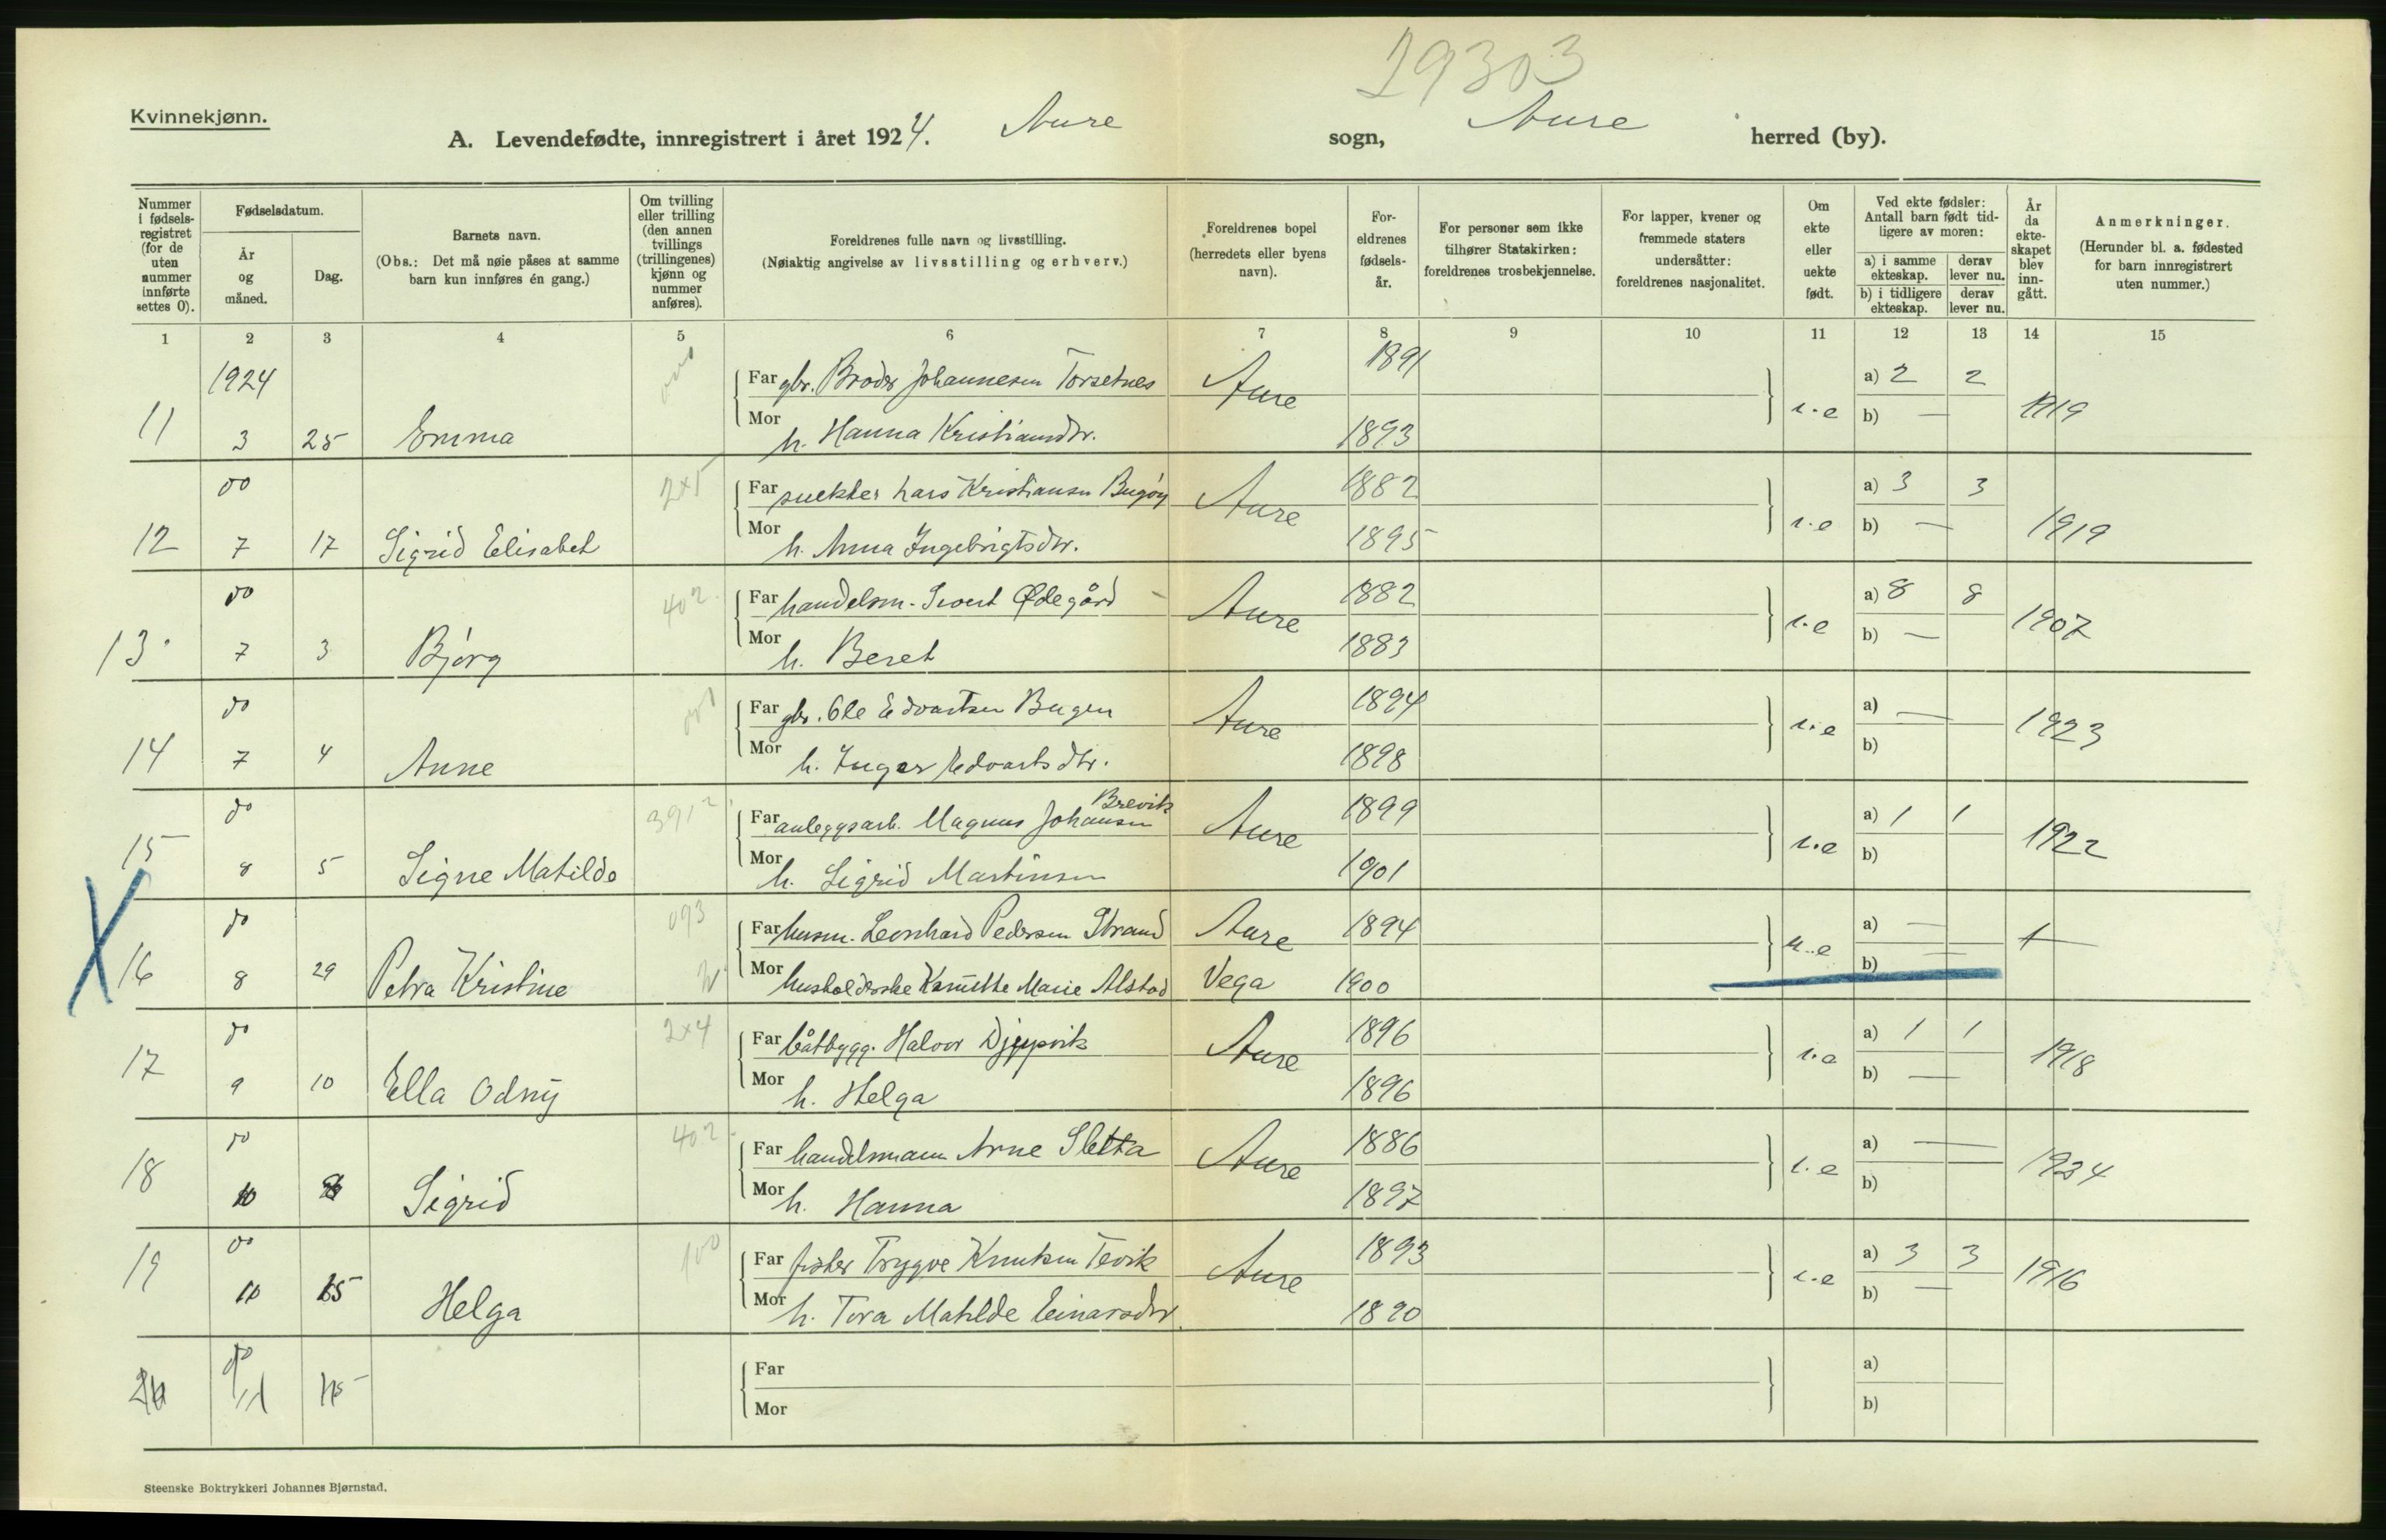 29303
Kvinnekjønn.
A. Levendefødte, innregistrert i året 1924. Aure sogn, Aure herred (by).
Nummer i fødsels-registret (for de uten nummer innførte settes 0).
Fødselsdatum.
År og måned.
Dag.
Barnets navn.
(Obs.: Det må nøie påses at samme barn kun innføres én gang.)
Om tvilling eller trilling (den annen tvillings (trillingenes) kjønn og nummer anføres).
Foreldrenes fulle navn og livsstilling.
(Nøiaktig angivelse av livsstilling og erhverv.)
Foreldrenes bopel (herredets eller byens navn).
For-eldrenes fødsels-år.
For personer som ikke tilhører Statskirken: foreldrenes trosbekjennelse.
For lapper, kvener og fremmede staters undersåtter: foreldrenes nasjonalitet.
Om ekte eller uekte født.
Ved ekte fødsler: Antall barn født tid-ligere av moren:
a) i samme ekteskap. derav lever nu.
b) i tidligere ekteskap. derav lever nu.
År da ekte-skapet blev inn-gått.
Anmerkninger.
(Herunder bl. a. fødested for barn innregistrert uten nummer.)
1 2 3 4 5 6 7 8 9 10 11 12 13 14 15
1924 Far gbr. Broder Johannesen Torsetnes Aure 1891 a) 2 2
11 3 25 Emma Mor h. Hanna Kristiansdtr. 1893 i.e b) — 1919
do 2x5 Far snekker Lars Kristiansen Bugøy Aure 1882 a) 3 3
12 7 17 Sigrid Elisabet Mor h. Anna Ingebrigtsdtr. 1895 i.e b) — 1919
do 402 Far handelsm. Sivert Ødegård Aure 1882 a) 8 8
13 7 3 Bjørg Mor h. Beret 1883 i.e b) — 1907
do Far gbr. Ole Edvartsen Bugen Aure 1894 a) —
14 7 4 Anne Mor h. Inger Edvartsdtr. 1898 i.e b) 1923
do 391 Far anleggsarb. Magnus Johansen Brevik Aure 1899 a) 1 1
15 8 5 Signe Matilde Mor h. Sigrid Martinsen 1901 i.e b) 1922
do 093 Far husm. Leonhard Pedersen Strand Aure 1894 a) —
X 16 8 29 Petra Kristine Mor husholderske Kamitte Marie Alstad Vega 1900 u.e b) —
do 2x4 Far båtbygg. Halvor Djupvik Aure 1896 a) 1 1
17 9 10 Ella Odny Mor h. Helga 1896 i.e b) — 1918
do 402 Far handelsmann Arne Sletta Aure 1886 a) —
18 10 Sigrid Mor h. Hanna 1897 i.e b) 1924
do 100 Far fisker Trygve Knutsen Tevik Aure 1893 a) 3 3
19 15 Helga Mor h. Tora Matilde Einarsdtr. 1890 i.e b) — 1916
do Far a)
Mor b)
Steenske Boktrykkeri Johannes Bjørnstad.